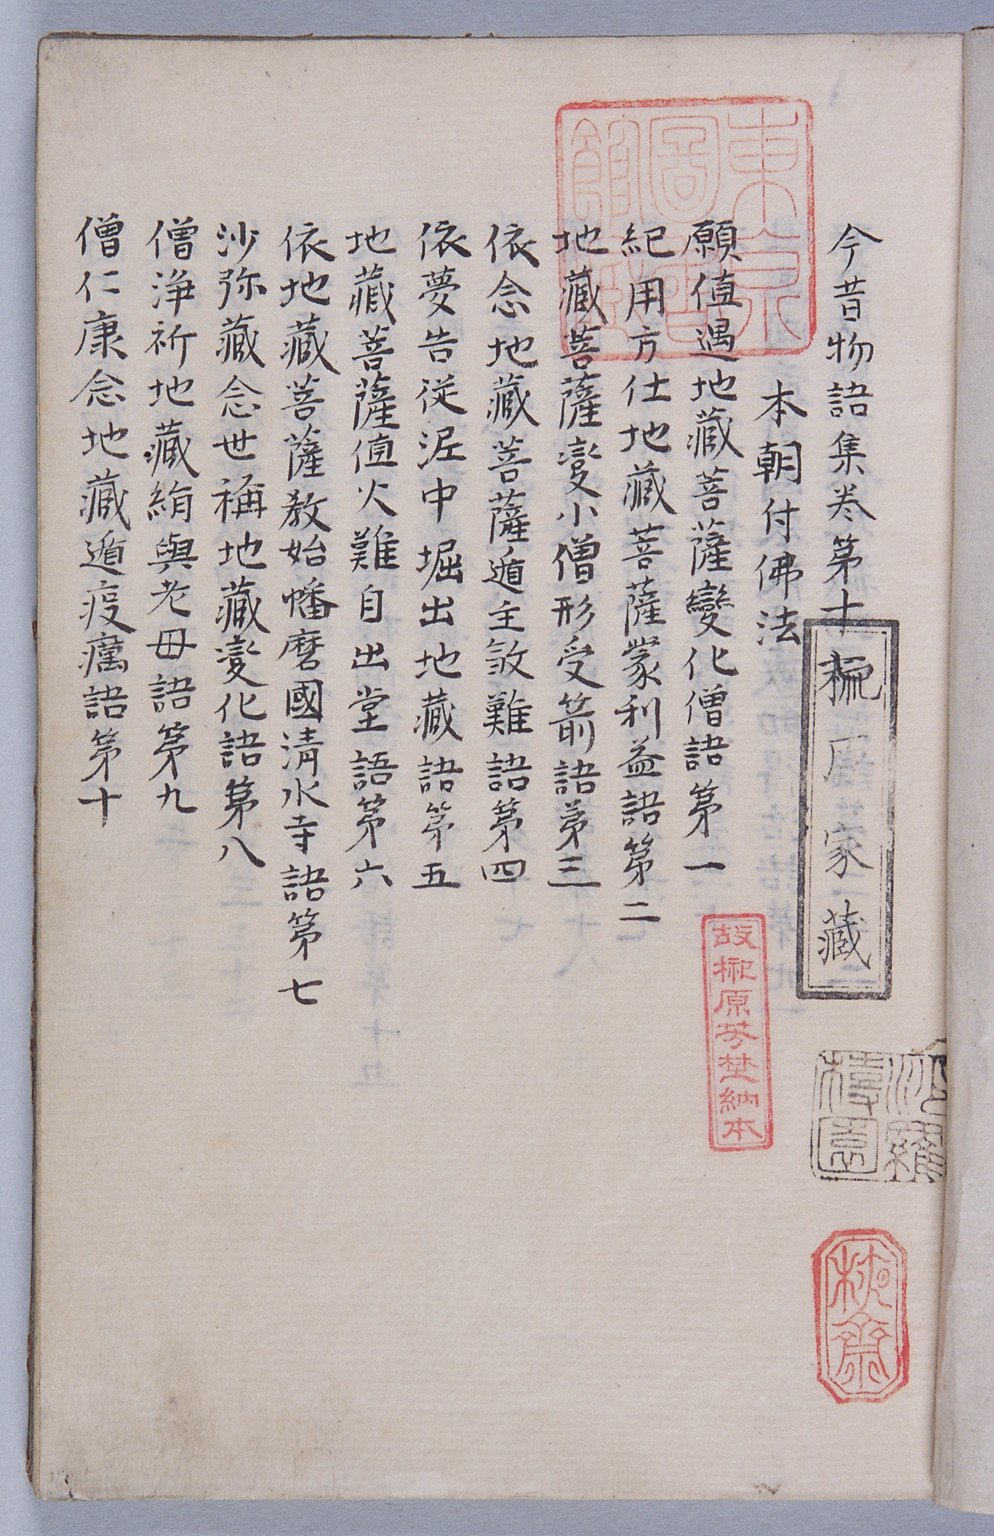 今昔物語集巻第十
本朝付佛法
願値遇地蔵菩薩變化僧語第一
紀用方仕地蔵菩薩蒙利益語第二
地蔵菩薩変小僧形受箭語第三
依念地蔵菩薩遁主敘難語第四
依夢告従泥中堀出地蔵語第五
地蔵菩薩値火難自出堂語第六
依地蔵菩薩教始幡磨國清水寺語第七
沙弥蔵念世稱地蔵変化語第八
僧浄祈地蔵絹與老母語第九
僧仁康念地蔵遁疫癘語第十
東京圖書館蔵
家蔵
故榊原芳埜納本
掖齋